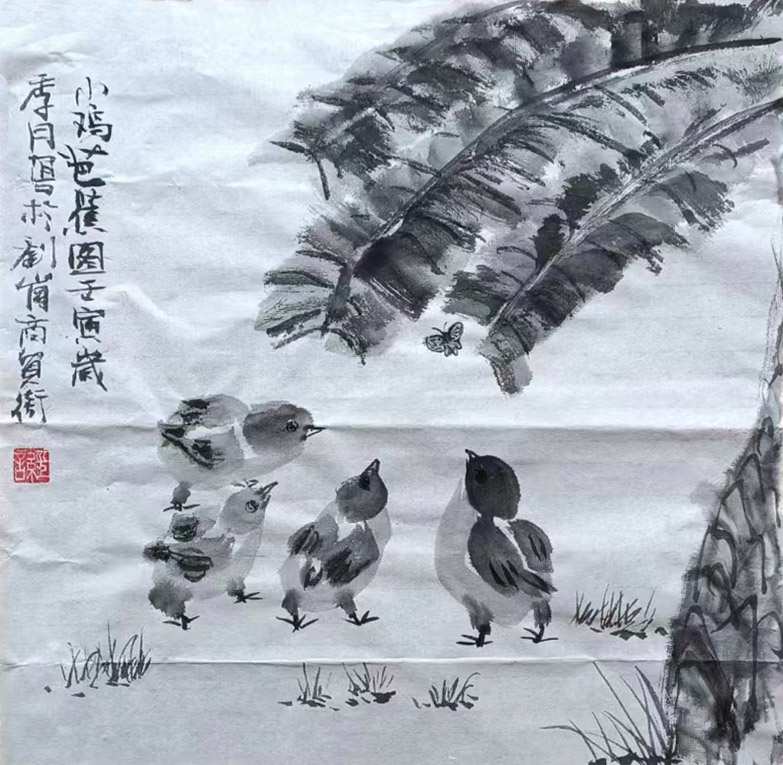 小鸡芭蕉图壬寅岁
季月写於刘嵛商贸街